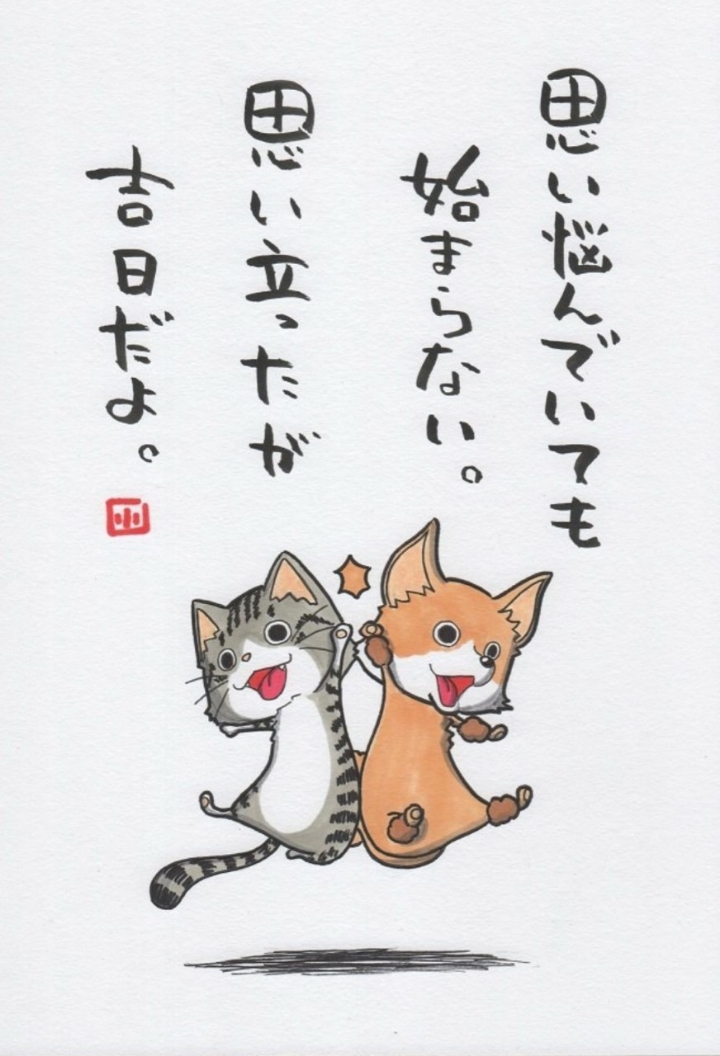 思い悩んでいても
始まらない。
思い立ったが
吉日だよ。